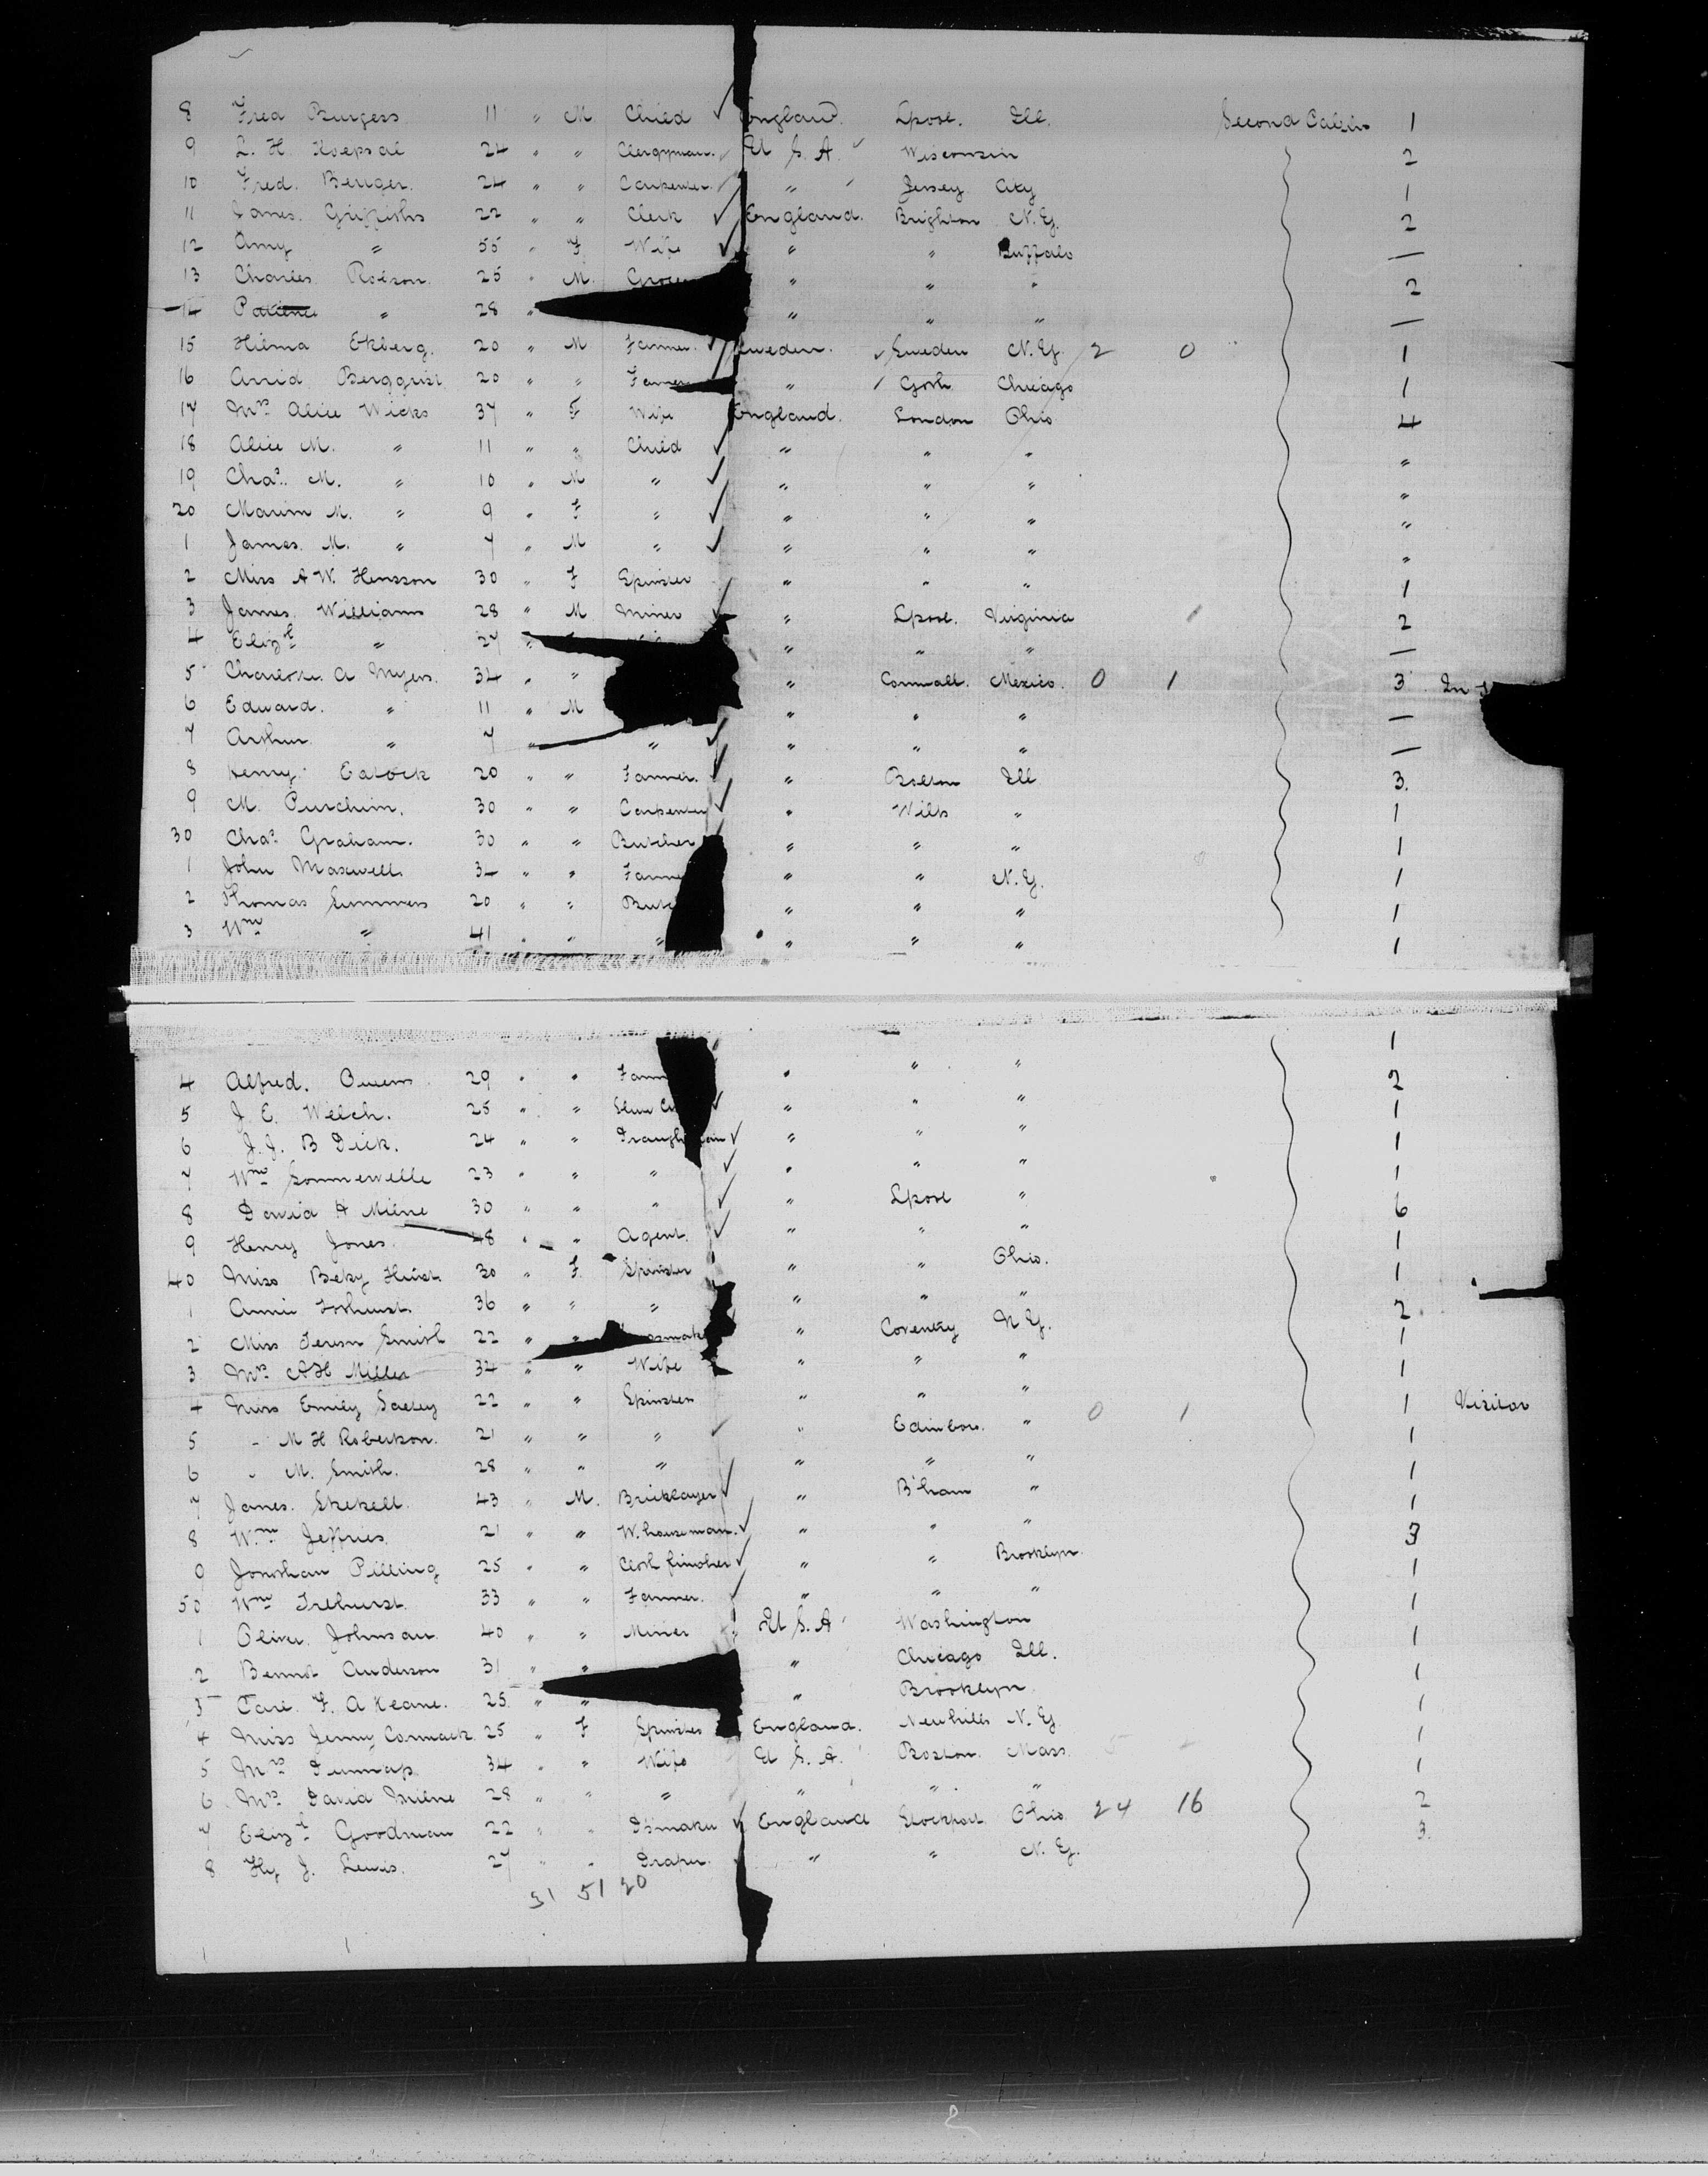 8 Fred Burgess 11 " M Child ✓ England. Lpool. Ill. Second Cabin 1
9 L. H. Koepsal 24 " " Clergyman. U S. A. Wisconsin 2
10 Fred. Benger. 24 " " Carpenter. " Jersey City 1
11 James. Griffiths 22 " " Clerk ✓ England. Brighton N.Y. 2
12 Amy " 55 " F Wife ✓ " " Buffalo —
13 Charles Robson. 25 " M. " " " 2
14 Patience " 28 " " " " —
15 Hilma Ekberg. 20 " M Farmer. ✓ Sweden. ✓ Sweden N.Y. 2 0 1
16 Arvid Bergqvist 20 " " " ✓ Goth Chicago 1
17 Mrs Alice Wicks 37 " F Wife England. London Ohio 4
18 Alice M. " 11 " " Child ✓ " " " "
19 Chas. M. " 10 " M " ✓ " " " "
20 Marion M. " 9 " F " ✓ " " " "
1 James. M. " 7 " M " ✓ " " " "
2 Miss A W. Hensson 30 " F Spinster " " " 1
3 James. Williams 28 " M Miner ✓ " Lpool. Virginia 1 2
4 Elizth " 27 " " " " —
5 A Myers. 34 " " " Cornwall. Mexico. 0 1 3 In
6 Edward. " 11 " M " " " —
7 Arthur. " 7 " " ✓ " " " —
8 Henry Eatock 20 " " Farmer. ✓ " Bolton Ill 3.
9 M. Purchim. 30 " " Carpenter ✓ " Wilts " 1
30 Chas. Graham. 30 " " Butcher " " " 1
1 John Maxwell 34 " " " " N.Y. 1
2 Thomas Summers 20 " " " " " 1
3 Wm " 41 " " " " " " 1
1
4 Alfred. Owens 29 " " " " " 2
5 J E. Welch. 25 " " ✓ " " " 1
6 J. J. B Dick. 24 " " ✓ " " " 1
7 Wm Sommerville 23 " " " ✓ " " " 1
8 David H Milne 30 " " " ✓ " Lpool " 6
9 Henry Jones. 48 " " Agent. ✓ " " " 1
40 Miss Beky Hurst 30 " F. Spinster " " Ohio. 1
1 Annie 36 " " " " " " 2
2 Miss Smith 22 " " " Coventry N Y. 1
3 Mrs A H Miller 34 " " Wife " " " 1
4 Miss Emily 22 " " Spinster " " " 1 Visitor
5 " M H Robertson. 21 " " " ✓ " Edinboro. " 0 1 1
6 " M. Smith. 28 " " " " " " 1
7 James. Skekell. 43 " M. Bricklayer ✓ " B'ham " 1
8 Wm Jeffries. 21 " " W.houseman. ✓ " " " 3
9 Jonathan Pilling 25 " " Cloth finisher ✓ " " Brooklyn. 1
50 Wm Trehurst. 33 " " Farmer. ✓ " " " 1
1 Oliver. Johnson 40 " " Miner U S. A Washington 1
2 Bennet Anderson 31 " " " Chicago Ill. 1
3 Carl F. A Keane. 25. " " " Brooklyn. 1
4 Miss Jenny Cormack. 25 " F Spinster England. N. Y 1
5 Mrs Dunnap. 34 " " Wife U S. A. Boston. Mass. 1
6 Mrs David Milne 28 " " " " " " 2
7 Elizth Goodman 22 " " D'maker ✓ England Stockport Ohio 24 16 3.
8 Hy J. Lewis. 27 " " Draper. " " N. Y.
31 51 20